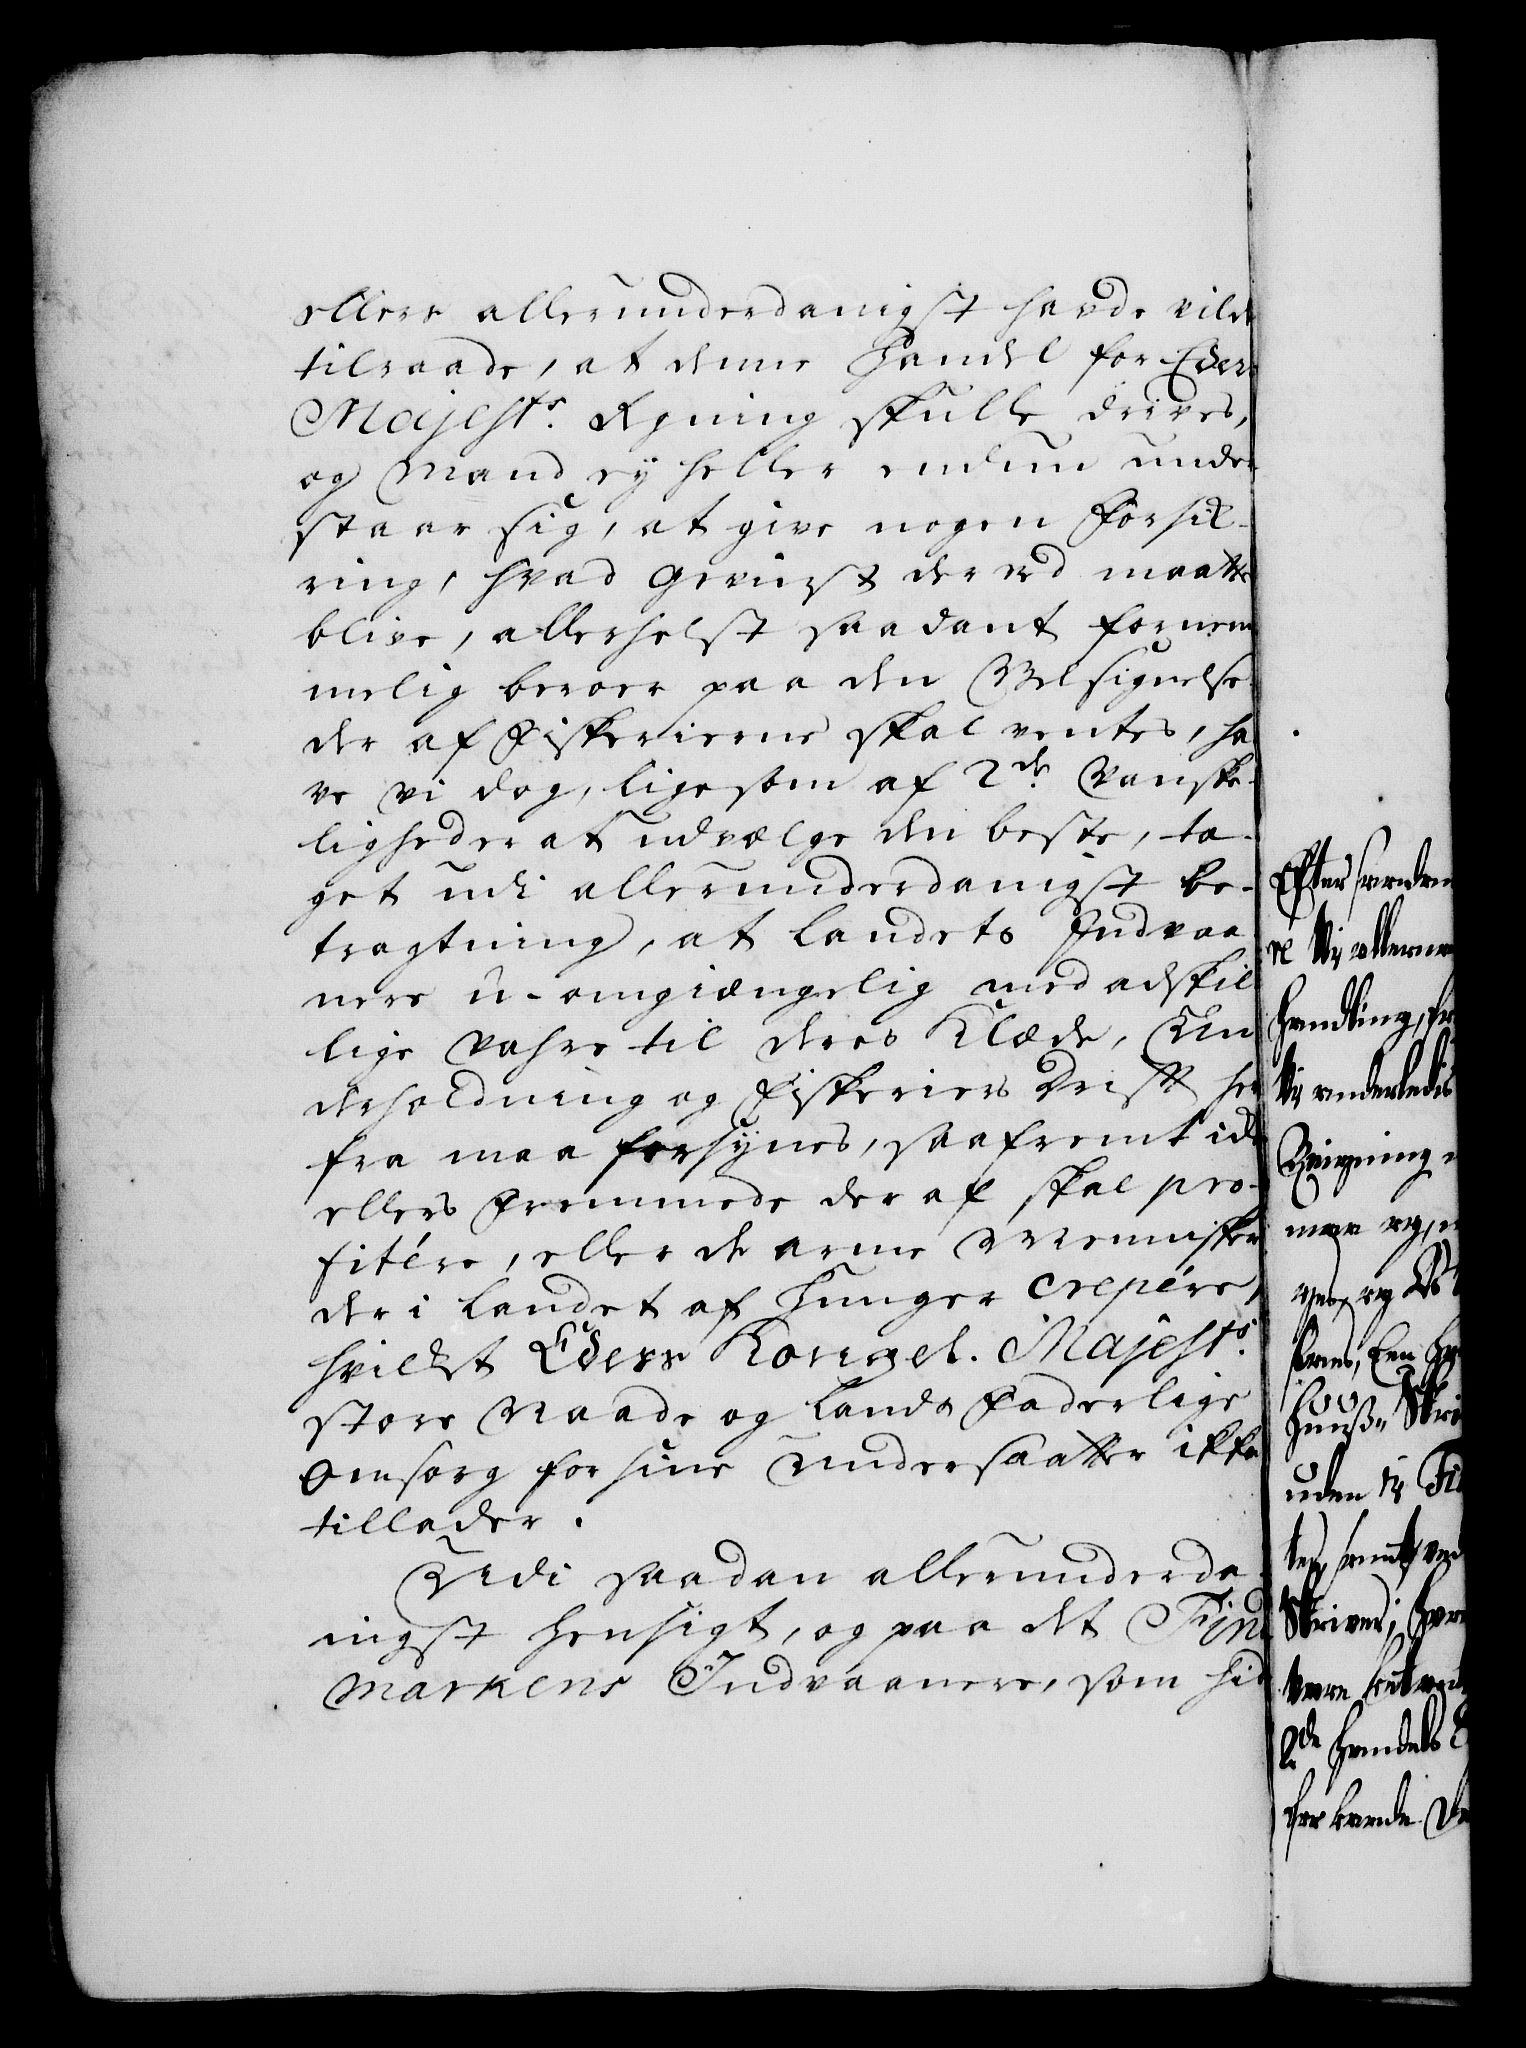 ellers allerunderdanigst hafde vilde
tilraade, at denne Handel for Eders
Majest:s Regning skulle drives,
og Mand ey heller endnu under
staar sig, at give nogen Forsik-
ring, hvad Gevinst derved maatte
blive, allerhelst saadant fornem
melig beroer paa den Velsignelse
der af Fiskerierne skal ventes, ha
ve vi dog, ligesom af 2de Vanske-
ligheder at udvælge den beste, ta-
get udi allerunderdanigst be-
tragtning, at Landets Indvaa
nere u-omgiængelig med adskil
lige Vahre til deres Klæde, Un
derholdning og Fiskeriers Drift her
fra maa forsynes, saafremt ide
ellers Fremmede deraf skal pro-
fitére, eller de arme Mennisker
der i Landet af Hunger crepére,
hvilket Eders Kongel. Majest:s
store Naade og Lands Faderlige
Omsorg for sine Undersaatter ikke
tillader.
Udi saadan allerunderda-
nigst Hensigt, og paa det Fin
markens Indvaanere, som hid
Efter
Vi
Handling,
Vi anderledis
uden
Skriver,
2de Handels